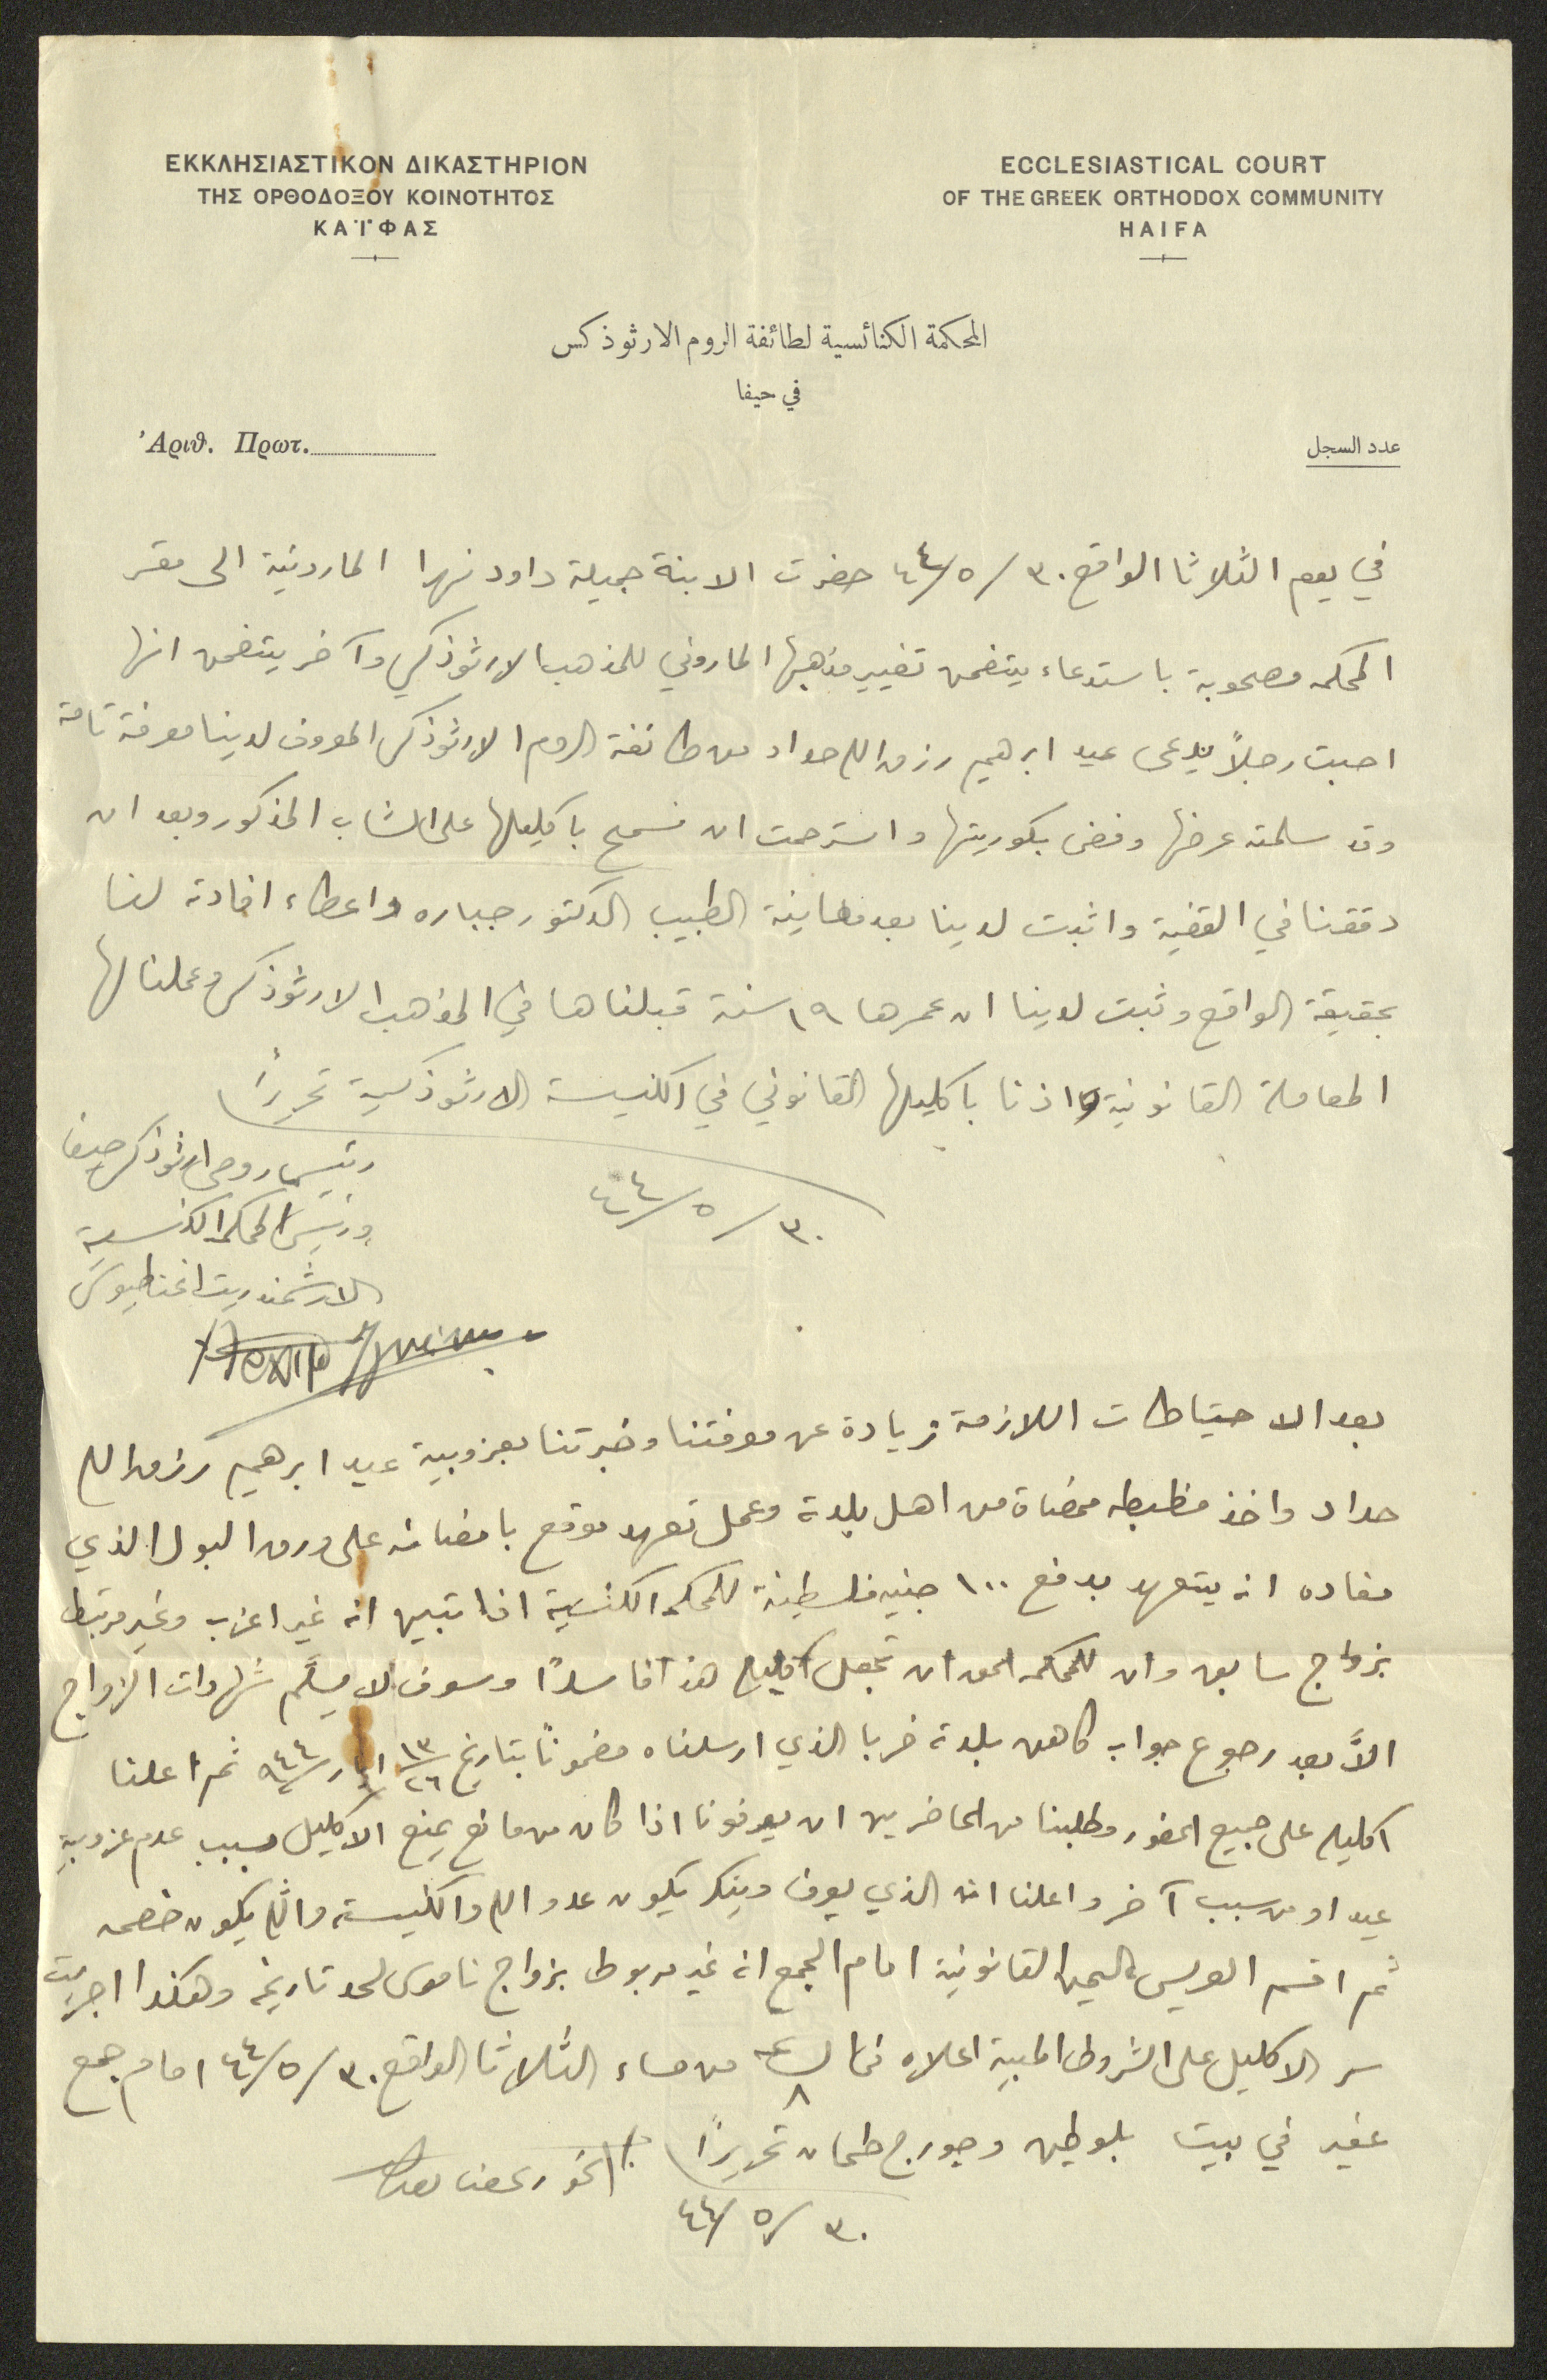 ΕΚΚΛΗΣΙΑΣΤΙΚΟΝ ΔΙΚΑΣΤΗΡΙΟΝ
ΤΗΣ ΟΡΘΟΔΟΞΟΥ ΚΟΙΝΟΤΗΤΟΣ
ΚΑΪΦΑΣ
ECCLESIASTICAL COURT
OF THE GREEK ORTHODOX COMMUNITY
HAIFA
المحكمة الكنائسية لطائفة الروم الارثوذكس
في حيفا
Ἀριθ. Πρωτ.
عدد السجل
في يوم الثلاثا الواقع ٣٠/٥/٤٤ حضرت الابنة جميلة داود نهرا المارونية الى مقر
المحكمه مصحوبة باستدعاء يتضمن تغيير مذهبها الماروني للمذهب الارثوذكسي وآخر يتضمن انها
احبت رجلاً يدعى عيد ابرهيم رزق الله حداد من طائفة الروم الارثوذكس المعروف لدينا معرفة تامة
وقد سلمته عرضها وفض بكوريتها واسترحمت ان نسمح باكليلها على الشاب المذكور وبعد ان
دققنا في القضية واثبت لدينا بعد معاينة الطبيب الدكتور جباره واعطاء افادة لنا
بحقيقة الواقع وثبت لدينا ان عمرها ١٩ سنة قبلناها في المذهب الارثوذكسي وعملنا لها
المعاملة القانونية واذنا باكليلها القانوني في الكنيسة الارثوذكسية تحريراً
٣٠/٥/٤٤
رئيس روحي ارثوذكس حيفا
ورئيس المحكمة الكنسية
الارشمندريت اغناطيوس
بعد الاحتياطات اللازمة زيادة عن معرفتنا وخبرتنا بعزوبية عيد ابرهيم رزق الله
حداد واخذ مظبطه ممضاة من اهل بلدة وعمل تعهد موقع بامضائه على ورق البول الذي
مفاده انه يتعهد بدفع ١٠٠ جنيه فلسطينة للمحكمة الكنسية اذا تبين انه غير اعزب وغير مرتبط
بزواج سابق وان للمحكمه الحق ان تجعل اكليله هذا فاسداً وسوف لا يسلَّم شهادات الزواج
الاَّ بعد رجوع جواب كاهن بلدة خربا الذي ارسلناه مضموناً بتاريخ ١٣/٢٦ ايار ٩٤٤ ثم اعلنا
اكليله على جميع الحضور وطلبنا من الحاضرين ان يعرفونا اذا كان من مانع يمنع الاكليل بسبب عدم عزوبية
عيد او من سبب آخر واعلنا انه الذي يعرف وينكر يكون عدو الله والكنيسة والله يكون خصمه
ثم اقسم العريس اليمين القانونية امام الجمع انه غير مربوط بزواج ناموسي لحد تاريخه وهكذا اجريت
سر الاكليل على الشروط المبينة اعلاه في الساعة ٨ من مساء الثلاثا الواقع ٣٠/٥/٤٤ امام جمع
غفير في بيت وجورج طحان تحريراً
الخوري
٣٠/٥/٤٤